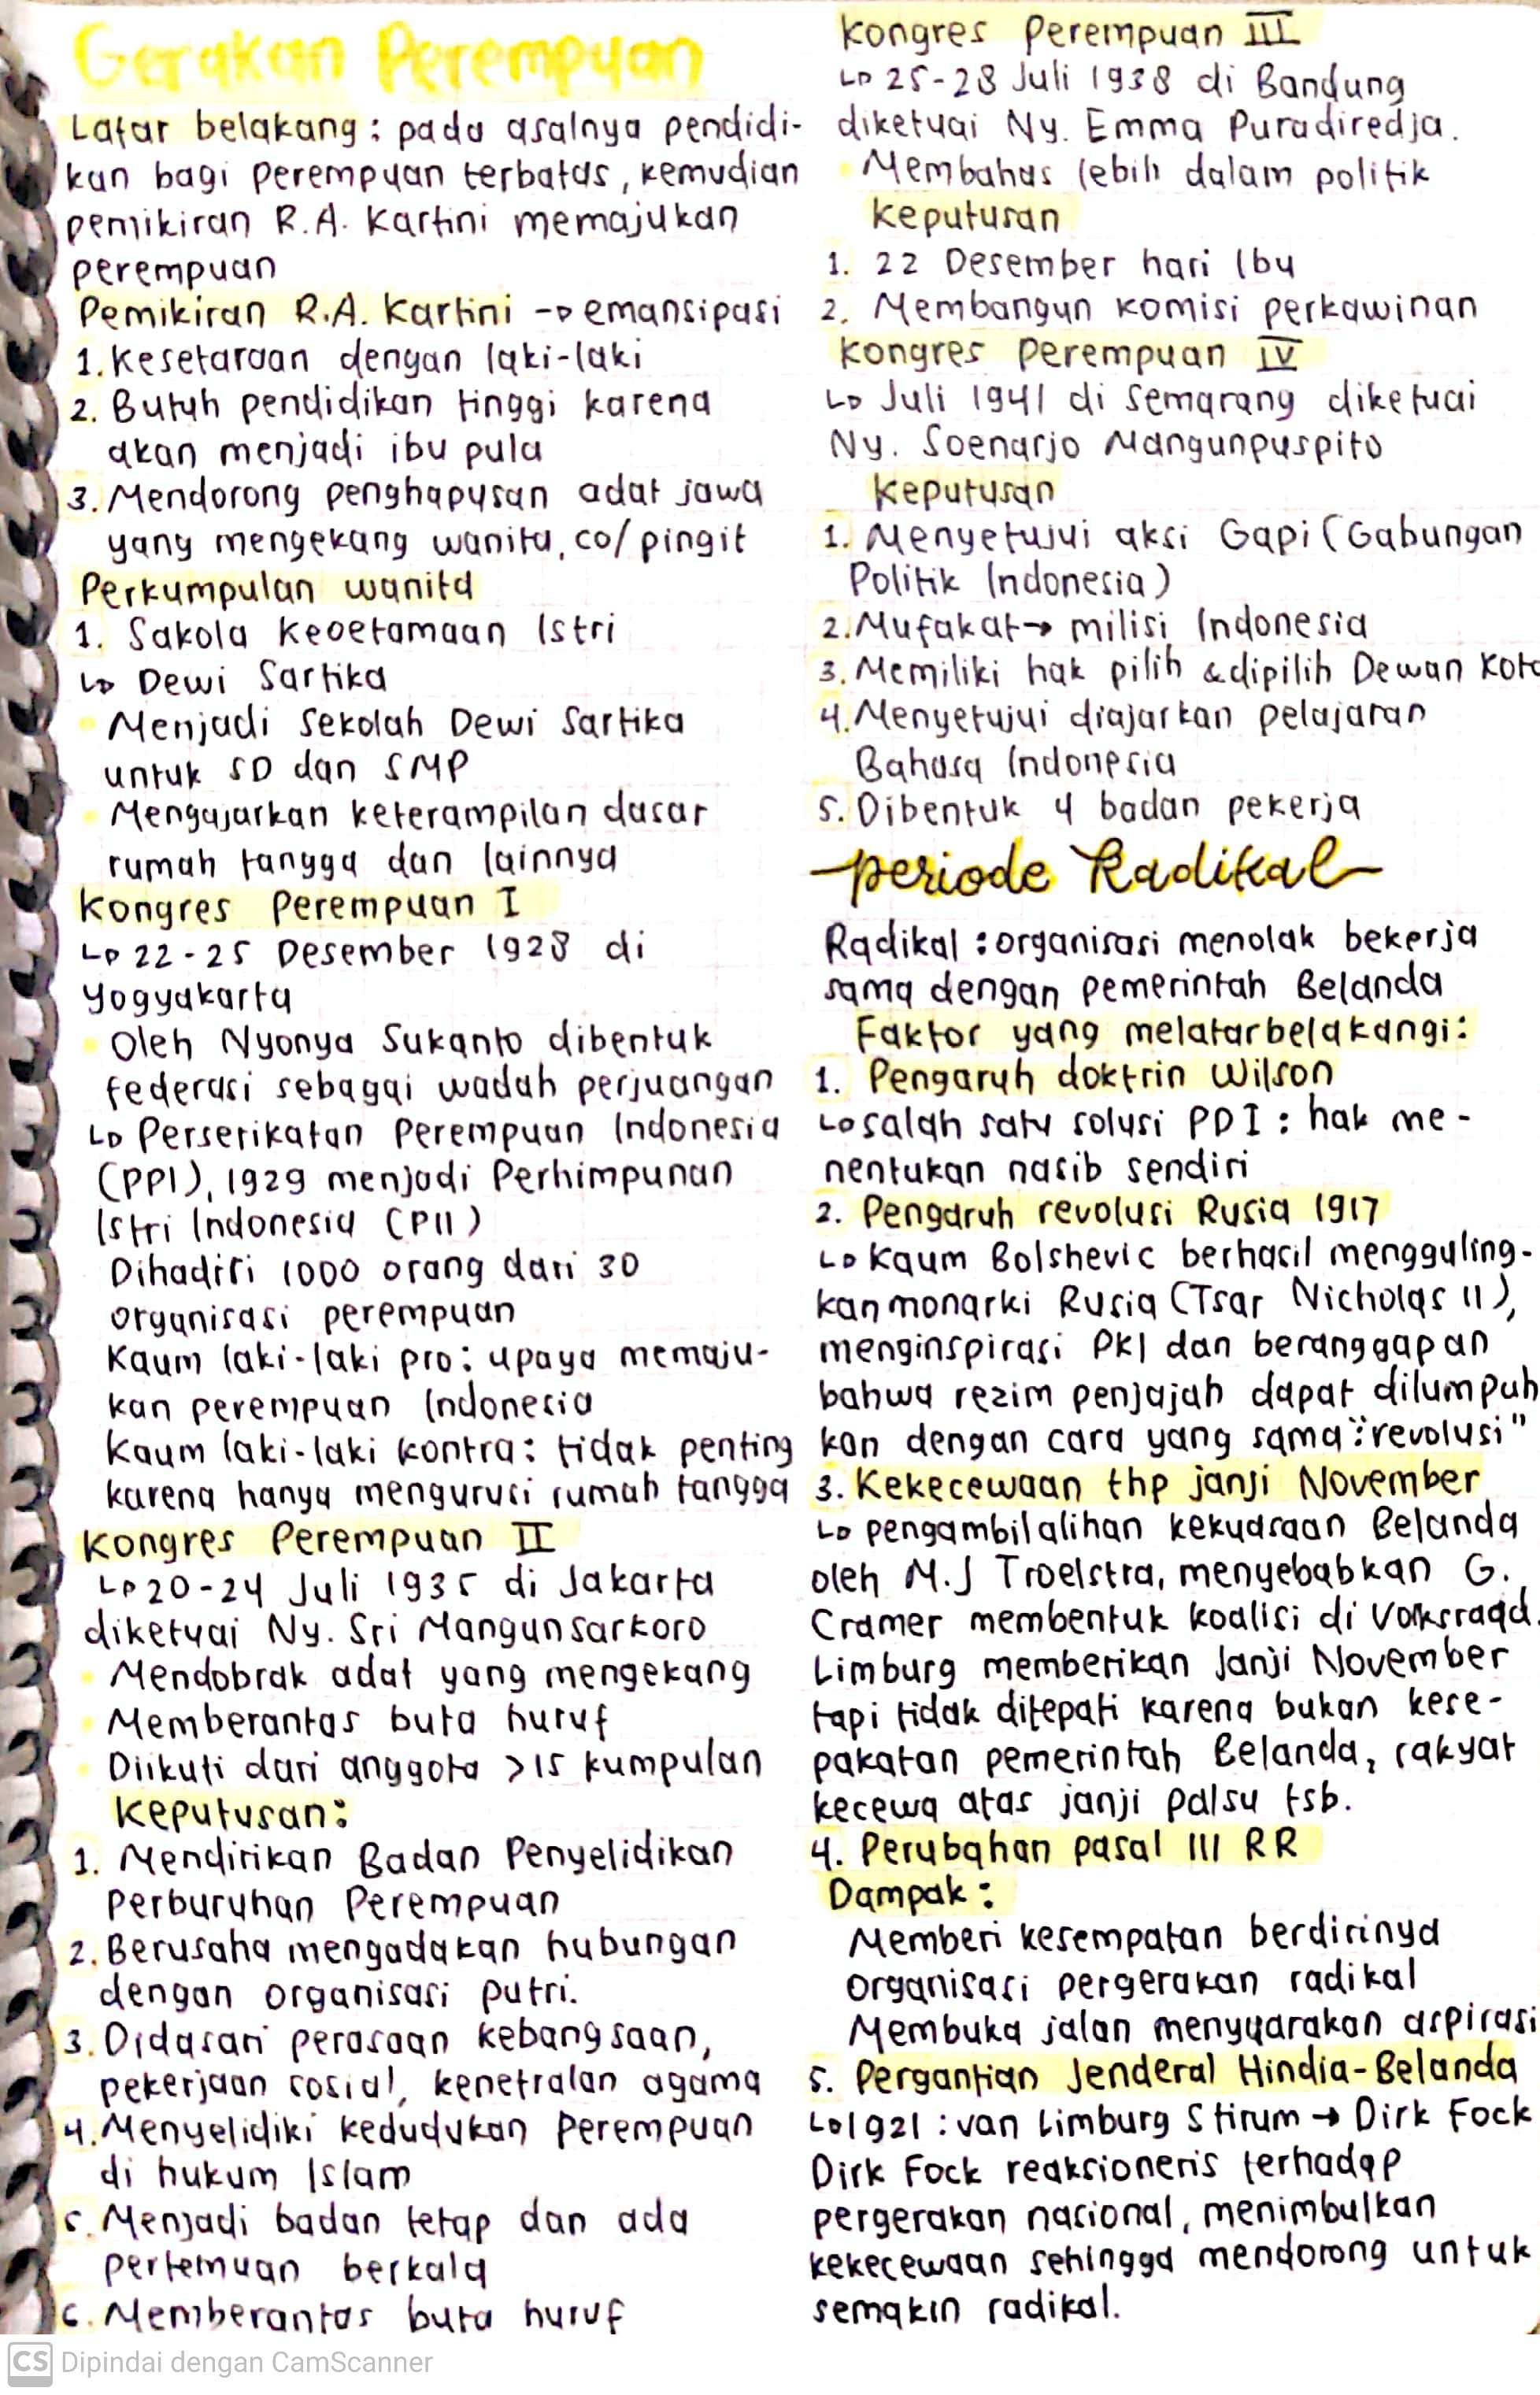 Gerakan Perempuan
Latar belakang : pada asalnya pendidi-
kan bagi perempuan terbatas, kemudian
pemikiran R.A. Kartini memajukan
perempuan
Pemikiran R.A. Kartini → emansipasi
1. Kesetaraan dengan laki-laki
2. Butuh pendidikan tinggi karena
akan menjadi ibu pula
3. Mendorong penghapusan adat jawa
yang mengekang wanita, co/ pingit
Perkumpulan wanita
1. Sakola Keoetamaan Istri
↳ Dewi Sartika
• Menjadi Sekolah Dewi Sartika
untuk SD dan SMP
• Mengajarkan keterampilan dasar
rumah tangga dan lainnya
Kongres Perempuan I
↳ 22-25 Desember 1928 di
Yogyakarta
• Oleh Nyonya Sukanto dibentuk
federasi sebagai wadah perjuangan
↳ Perserikatan Perempuan Indonesia
(PPI), 1929 menjadi Perhimpunan
Istri Indonesia (PII)
Dihadiri 1000 orang dari 30
organisasi perempuan
Kaum laki-laki pro : upaya memaju-
kan perempuan Indonesia
Kaum laki-laki kontra : tidak penting
karena hanya mengurusi rumah tangga
Kongres Perempuan II
↳ 20-24 Juli 1935 di Jakarta
diketuai Ny. Sri Mangunsarkoro
• Mendobrak adat yang mengekang
• Memberantas buta huruf
• Diikuti dari anggota >15 kumpulan
Keputusan :
1. Mendirikan Badan Penyelidikan
Perburuhan Perempuan
2. Berusaha mengadakan hubungan
dengan organisasi putri.
3. Didasari perasaan kebangsaan,
pekerjaan sosial, kenetralan agama
4. Menyelidiki kedudukan Perempuan
di hukum Islam
5. Menjadi badan tetap dan ada
pertemuan berkala
6. Memberantas buta huruf
Kongres Perempuan III
↳ 25-28 Juli 1938 di Bandung
diketuai Ny. Emma Puradiredja.
• Membahas lebih dalam politik
Keputusan
1. 22 Desember hari Ibu
2. Membangun komisi perkawinan
Kongres Perempuan IV
↳ Juli 1941 di Semarang diketuai
Ny. Soenarjo Mangunpuspito
Keputusan
1. Menyetujui aksi Gapi (Gabungan
Politik Indonesia)
2. Mufakat → milisi Indonesia
3. Memiliki hak pilih & dipilih Dewan Kota
4. Menyetujui diajarkan pelajaran
Bahasa Indonesia
5. Dibentuk 4 badan pekerja
Periode Radikal
Radikal : organisasi menolak bekerja
sama dengan pemerintah Belanda
Faktor yang melatarbelakangi :
1. Pengaruh doktrin Wilson
↳ salah satu solusi PD I : hak me-
nentukan nasib sendiri
2. Pengaruh revolusi Rusia 1917
↳ Kaum Bolshevic berhasil mengguling-
kan monarki Rusia (Tsar Nicholas II),
menginspirasi PKI dan beranggapan
bahwa rezim penjajah dapat dilumpuh
kan dengan cara yang sama : "revolusi"
3. Kekecewaan thp janji November
↳ pengambilalihan kekuasaan Belanda
oleh M.J Troelstra, menyebabkan G.
Cramer membentuk koalisi di Volksraad.
Limburg memberikan Janji November
tapi tidak ditepati karena bukan kese-
pakatan pemerintah Belanda, rakyat
kecewa atas janji palsu tsb.
4. Perubahan pasal III RR
Dampak :
Memberi kesempatan berdirinya
organisasi pergerakan radikal
Membuka jalan menyuarakan aspirasi
5. Pergantian Jenderal Hindia-Belanda
↳ 1921 : van Limburg Stirum → Dirk Fock
Dirk Fock reaksioneris terhadap
pergerakan nasional, menimbulkan
kekecewaan sehingga mendorong untuk
semakin radikal.
CS Dipindai dengan CamScanner